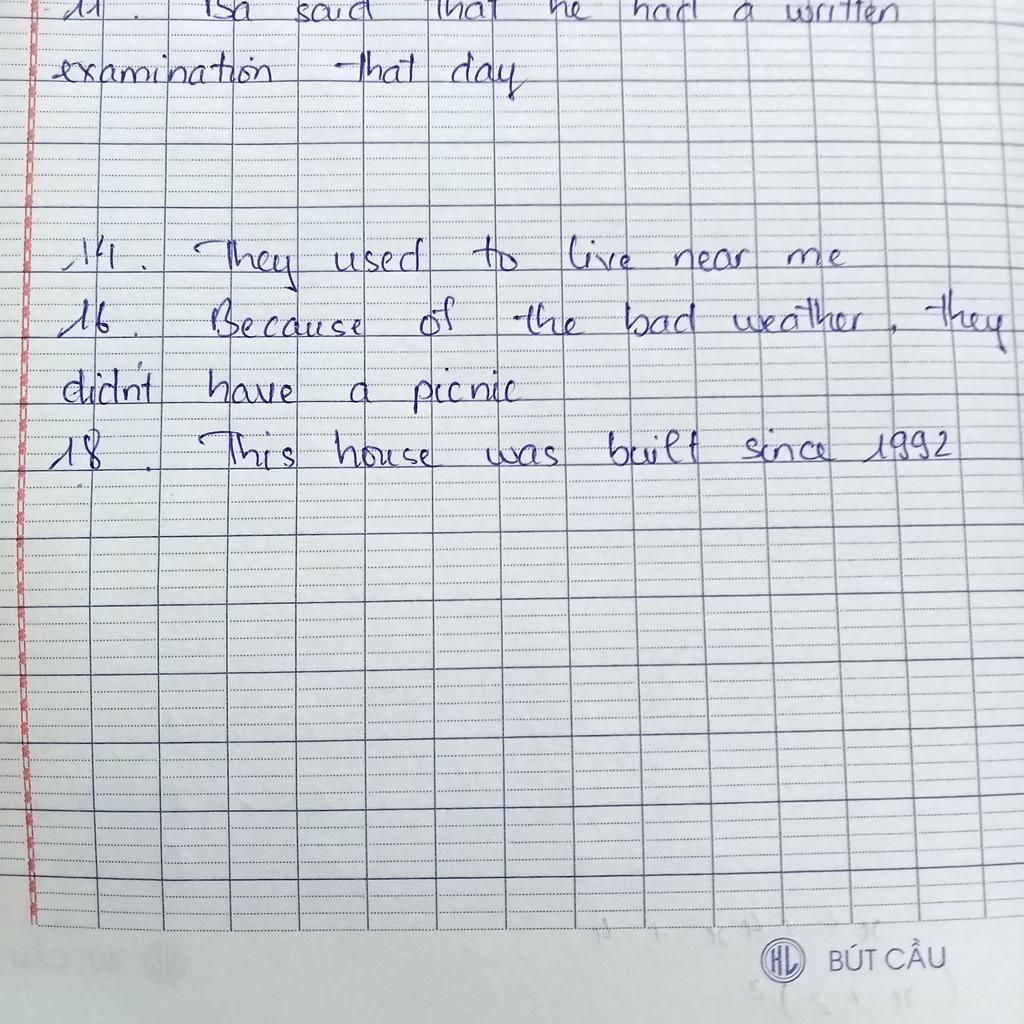 11. Ba said that he had a written
examination that day
14. They used to live near me
16. Because of the bad weather, they
didn't have a picnic
18. This house was built since 1992
HL BÚT CẦU